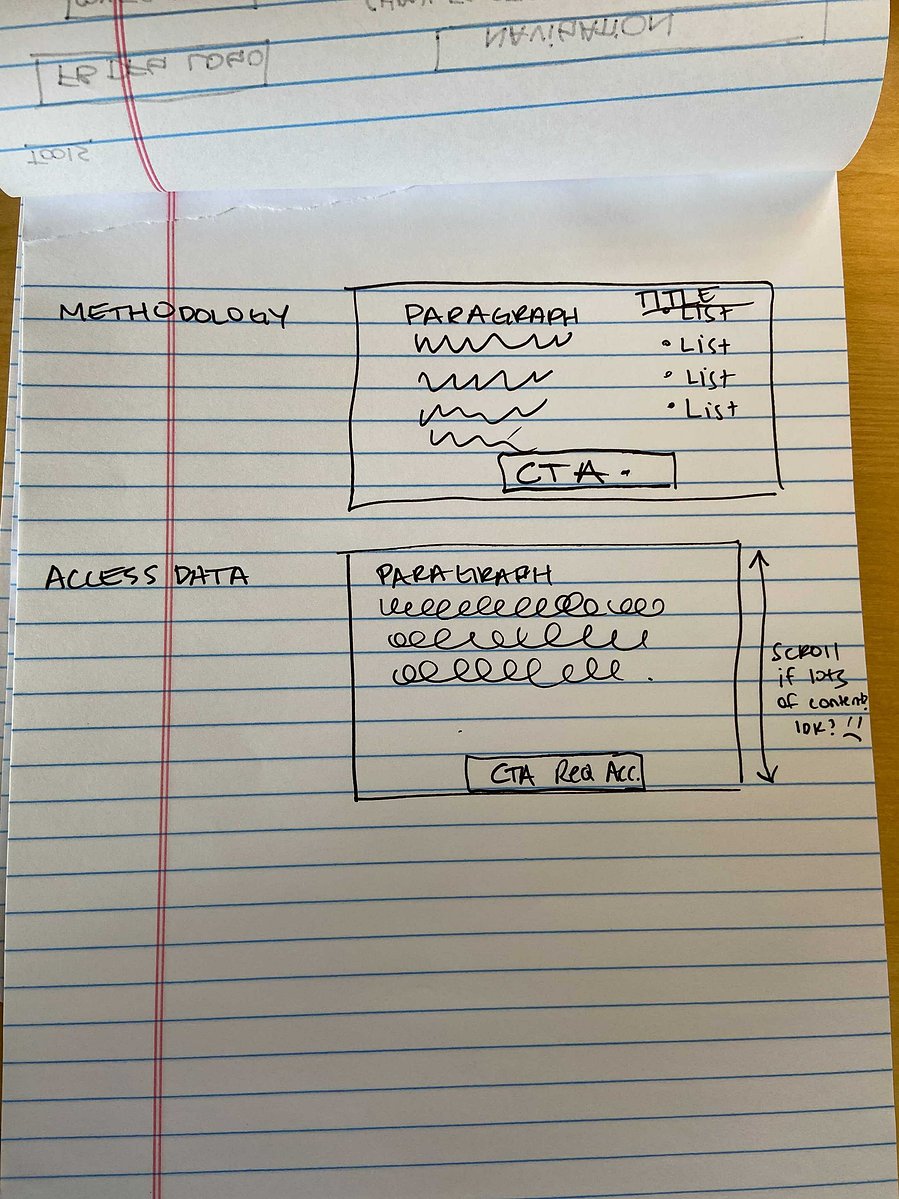 NAVIGATION
LOGO
TOOLS
METHODOLOGY
PARAGRAPH
TITLE
• List
• List
• List
• List
CTA
ACCESS DATA
PARAGRAPH
CTA Req Acc.
SCROLL
if lots
of content